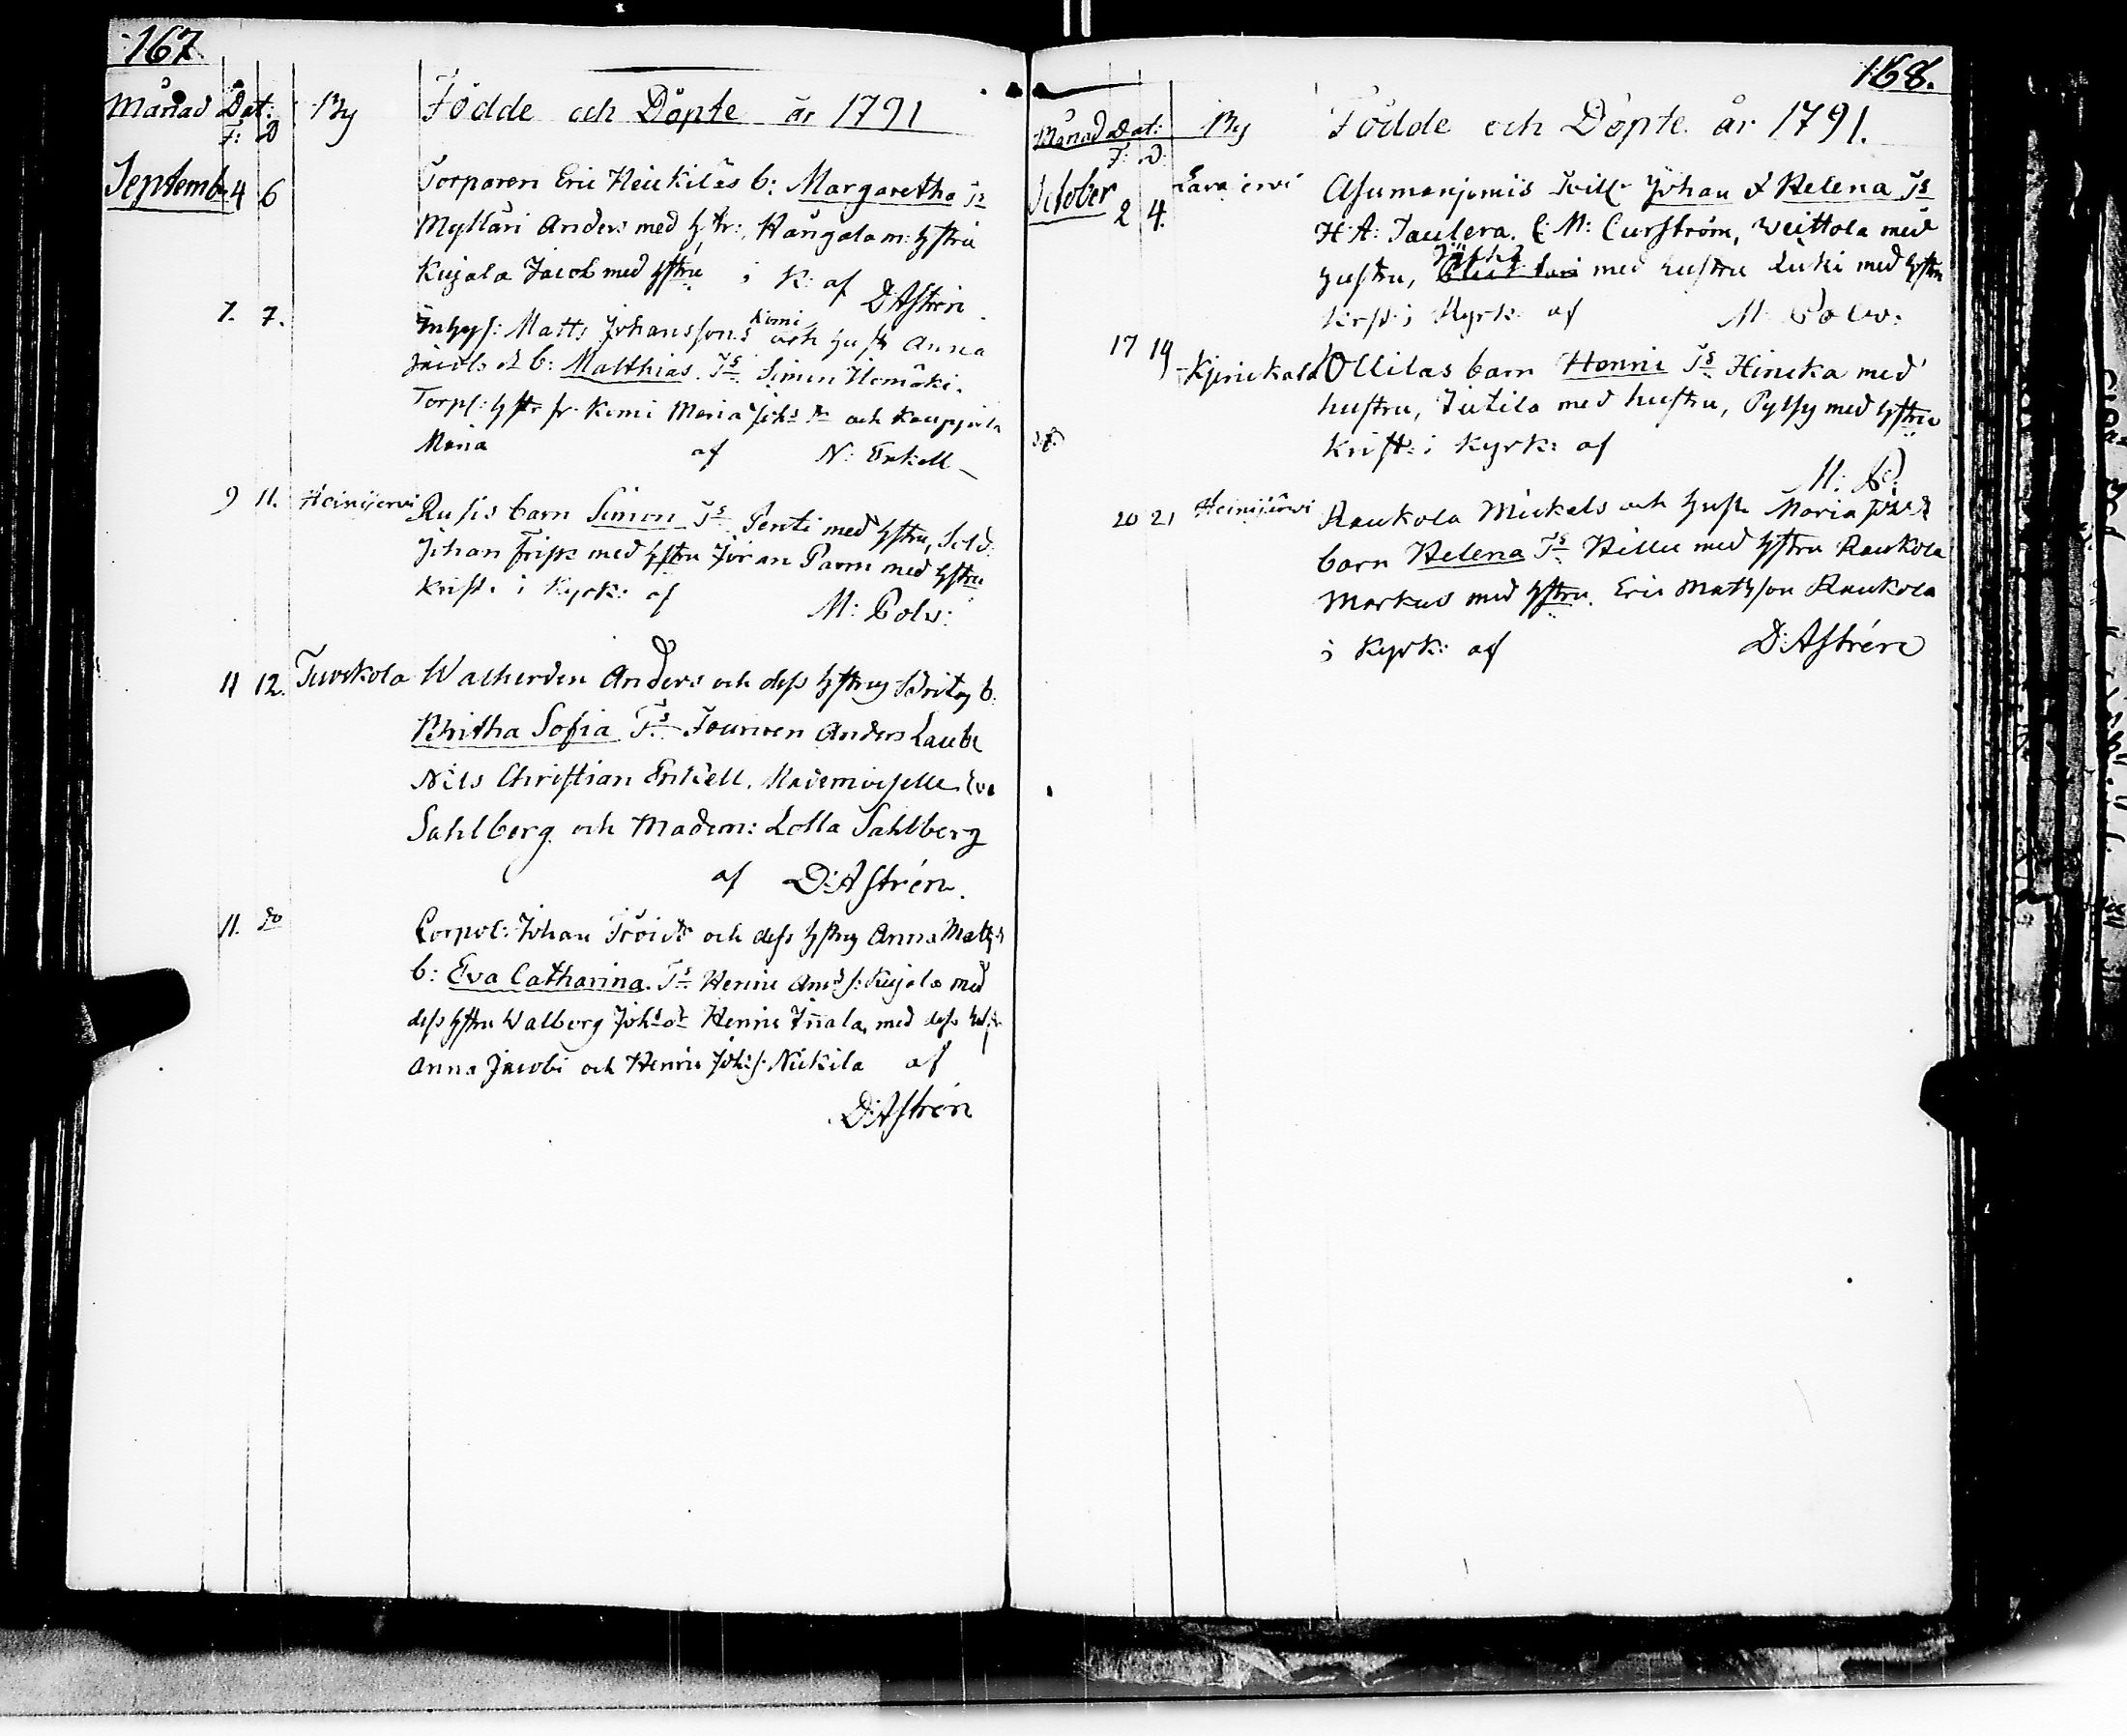 167
Månad Dat: By Födde och Döpte år 1791
F: D
Septemb 4 6 Torparen Eric Heickiläs b: Margaretha Ts
Myllari Anders med hstr: Kangala m: hstru
Kujala Jacob med hstru i K: af
D: Astrén
7. 7. Inhys: Matts Johanssons Kemi och hustr Anna
Jacobs d b: Matthias. Ts Simon
Torps: hstr fr. Kemi Maria Johs dr och Kauppila
Maria af N: Enkell
9 11. Heinijervi Rusis barn Simon Ts Penti med hstru, Sold:
Johan Frisk med hstru Jöran Parm med hstru
Krist. i Kyrk: af M: Polv:
11 12. Turckola Anders och dess hstrus Britas b.
Britha Sofia Ts Anders Laube
Nils Christian Enkell. Mademoiselle Eva
Sahlberg och Madem: Lolla Sahlberg
af D: Astrén.
11. do Corpol: Johan och dess hstrus Anna Mattsd
b: Eva Catharina. Ts Henric And: s: Kujala med
dess hstru Walborg Johsdr Henric med dess hustr
Anna Jacobi och Henric Johs: s: Nickila af
D: Astrén
168.
Månad Dat: By Födde och Döpte år 1791.
F: D:
October 2 4. Asumaniemis Johan & Helena Ts
H: A: C: M: Curström, Weittola med
hustru, med hustru Luki med hstru
Krist: i Kyrk: af M: Polv:
17 19 Ollilas barn Henric Ts Hincka med
hustru, Jutila med hustru, Pylsy med hstru
Krist: i Kyrk: af
M: P:
20 21 Heinijärvi Raukola Mickels och hustr Maria Johsd
barn Helena Ts Hillu med hstru Raukola
Markus med hstru. Eric Matsson Raukola
i Kyrk: af D: Astrén